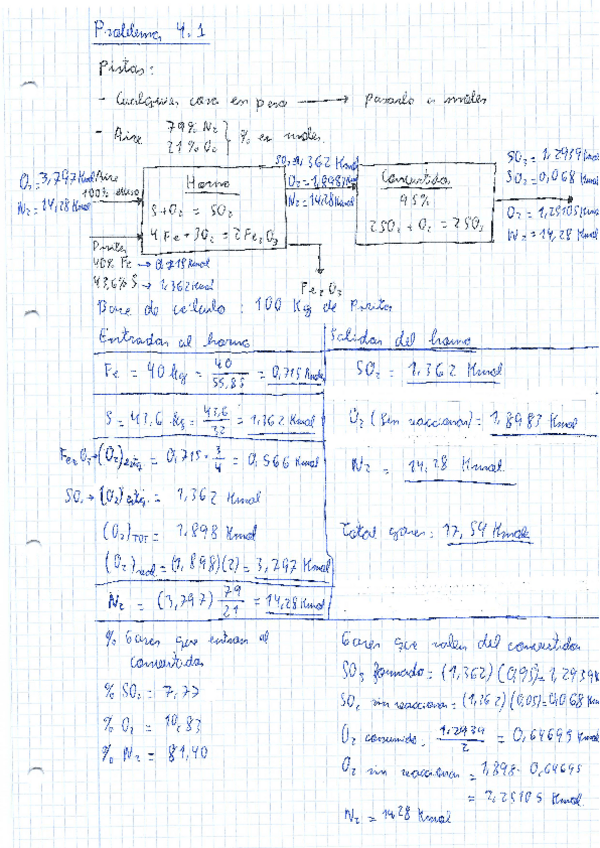 Problema 4.1
Pistas:
- Cualquier cosa en peso → pasarlo a moles
- Aire 79% N2 } % en moles.
21% O2
O2 = 3,797 Kmol Aire
100% exceso
N2 = 14,28 Kmol
Horno
S + O2 = SO2
4 Fe + 3O2 = 2 Fe2O3
SO2 = 1,362 Kmol
O2 = 1,8983 Kmol
N2 = 14,28 Kmol
Convertidor
95%
2SO2 + O2 = 2SO3
SO3 = 1,2939 Kmol
SO2 = 0,068 Kmol
O2 = 1,25105 Kmol
N2 = 14,28 Kmol
Piritas
40% Fe → 0,715 Kmol
43,6% S → 1,362 Kmol
Fe2O3
Base de cálculo : 100 Kg de Piritas
Entradas al horno
Fe = 40 kg = 40/55,85 = 0,715 Kmol
S = 43,6 kg = 43,6/32 = 1,362 Kmol
Fe2O3 → (O2) = 0,715 · 3/4 = 0,566 Kmol
SO2 → (O2) = 1,362 Kmol
(O2)TOT = 1,898 Kmol
(O2)real = (1,898)(2) = 3,797 Kmol
N2 = (3,797) 79/21 = 14,28 Kmol
Salidas del horno
SO2 = 1,362 Kmol
O2 (sin reaccionar) = 1,8983 Kmol
N2 = 14,28 Kmol
Total gases: 17,54 Kmol
% Gases que entran al
convertidor
% SO2 = 7,77
% O2 = 10,83
% N2 = 81,40
Gases que salen del convertidor
SO3 formado = (1,362)(0,95) = 1,2939 K
SO2 sin reaccionar = (1,362)(0,05) = 0,068 Km
O2 consumido = 1,2939/2 = 0,64695 Kmol
O2 sin reaccionar = 1,898 - 0,64695
= 1,25105 Kmol
N2 = 14,28 Kmol